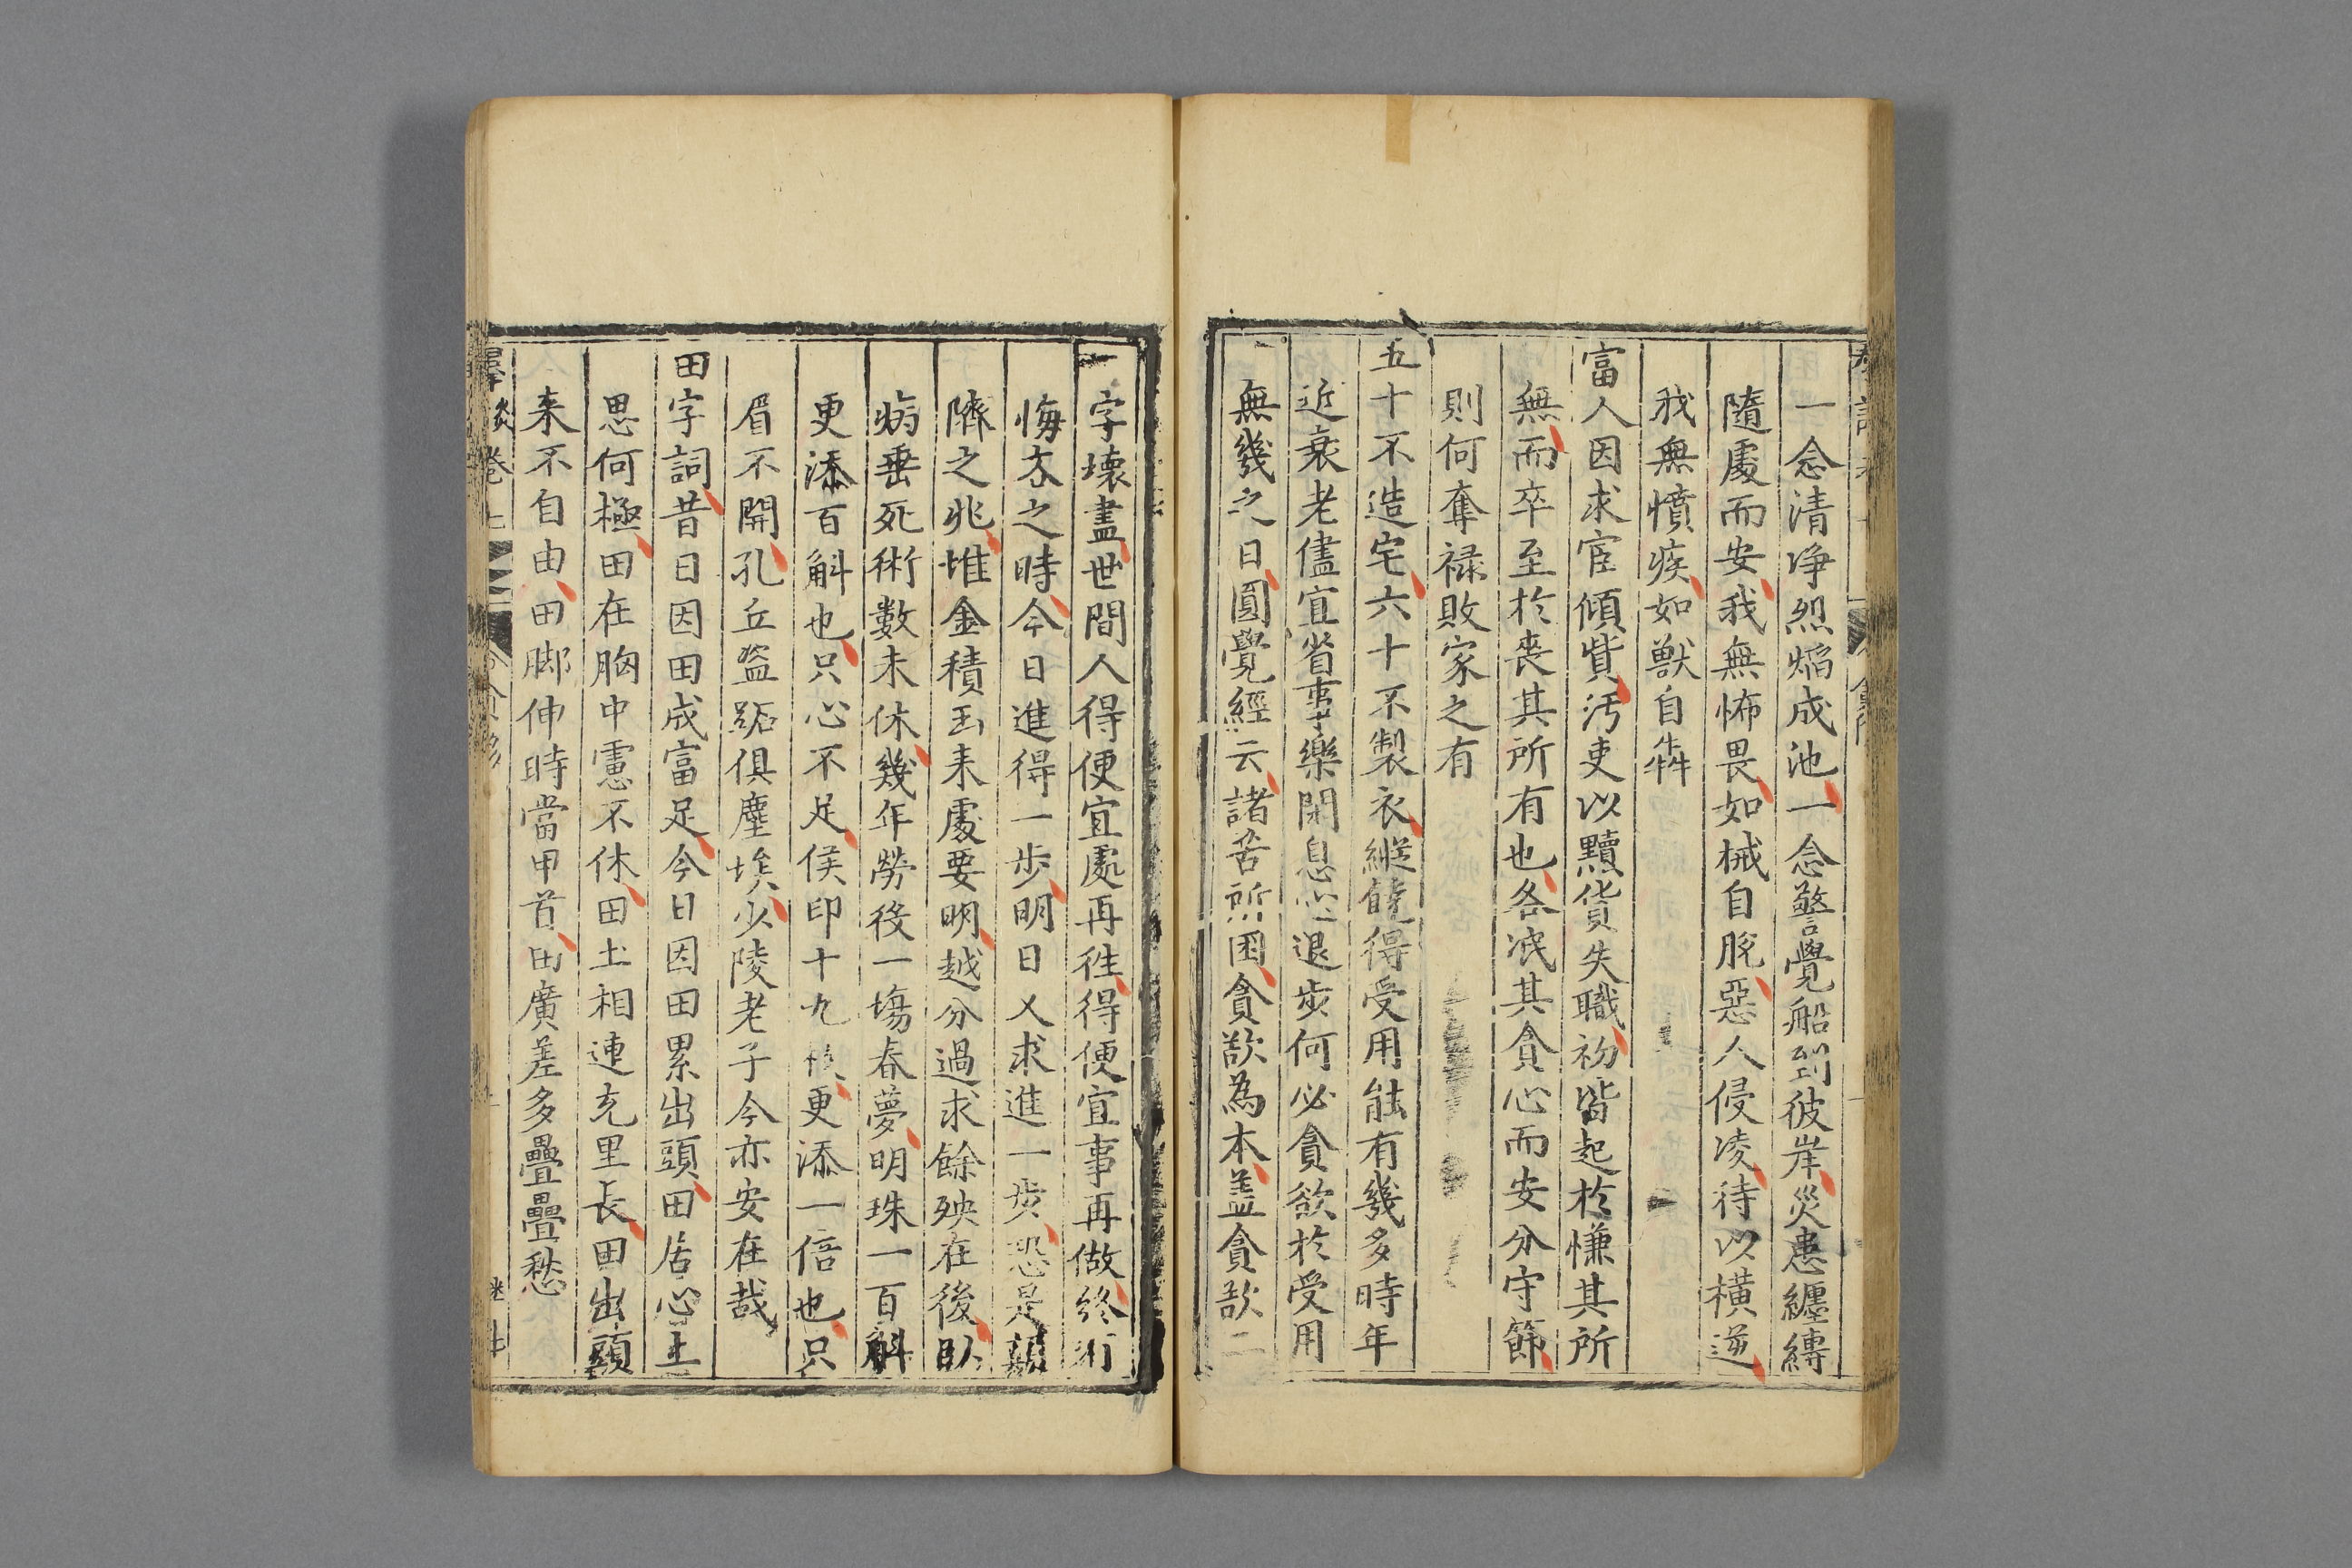 一念清净烈焰成池一念警覺船到彼岸災患纏縳
隨處而安我無怖畏如械自脫惡人侵凌待以橫逆
我無憤疾如獸自犇
富人因求宦傾貲汚吏以黷貨失職初皆起於慊其所
無而卒至於喪其所有也各泯其貪心而安分守節
則何奪禄敗家之有
五十不造宅六十不製衣縱饒得受用能有幾多時年
近衰老儘宜省事樂閑息心退步何必貪欲於受用
無幾之日圓覺經云諸苦所困貪欲為本盖貪欲二
字壞盡世間人得便宜處再徃得便宜事再做終有
悔吝之時今日進得一步明日又求進一步恐是顛
隮之兆堆金積玉来處要明越分過求餘殃在後臥
病垂死術數未休幾年勞役一塲春夢明珠一百斛
更添百斛也只心不足侯印十九枚更添一倍也只
眉不開孔丘盜跖俱塵埃少陵老子今亦安在哉
田字詞昔日因田成富足今日因田累出頭田居心上
思何極田在胸中慮不休田土相連充里長田出頭
来不自由田脚伸時當甲首田廣差多疊疊愁